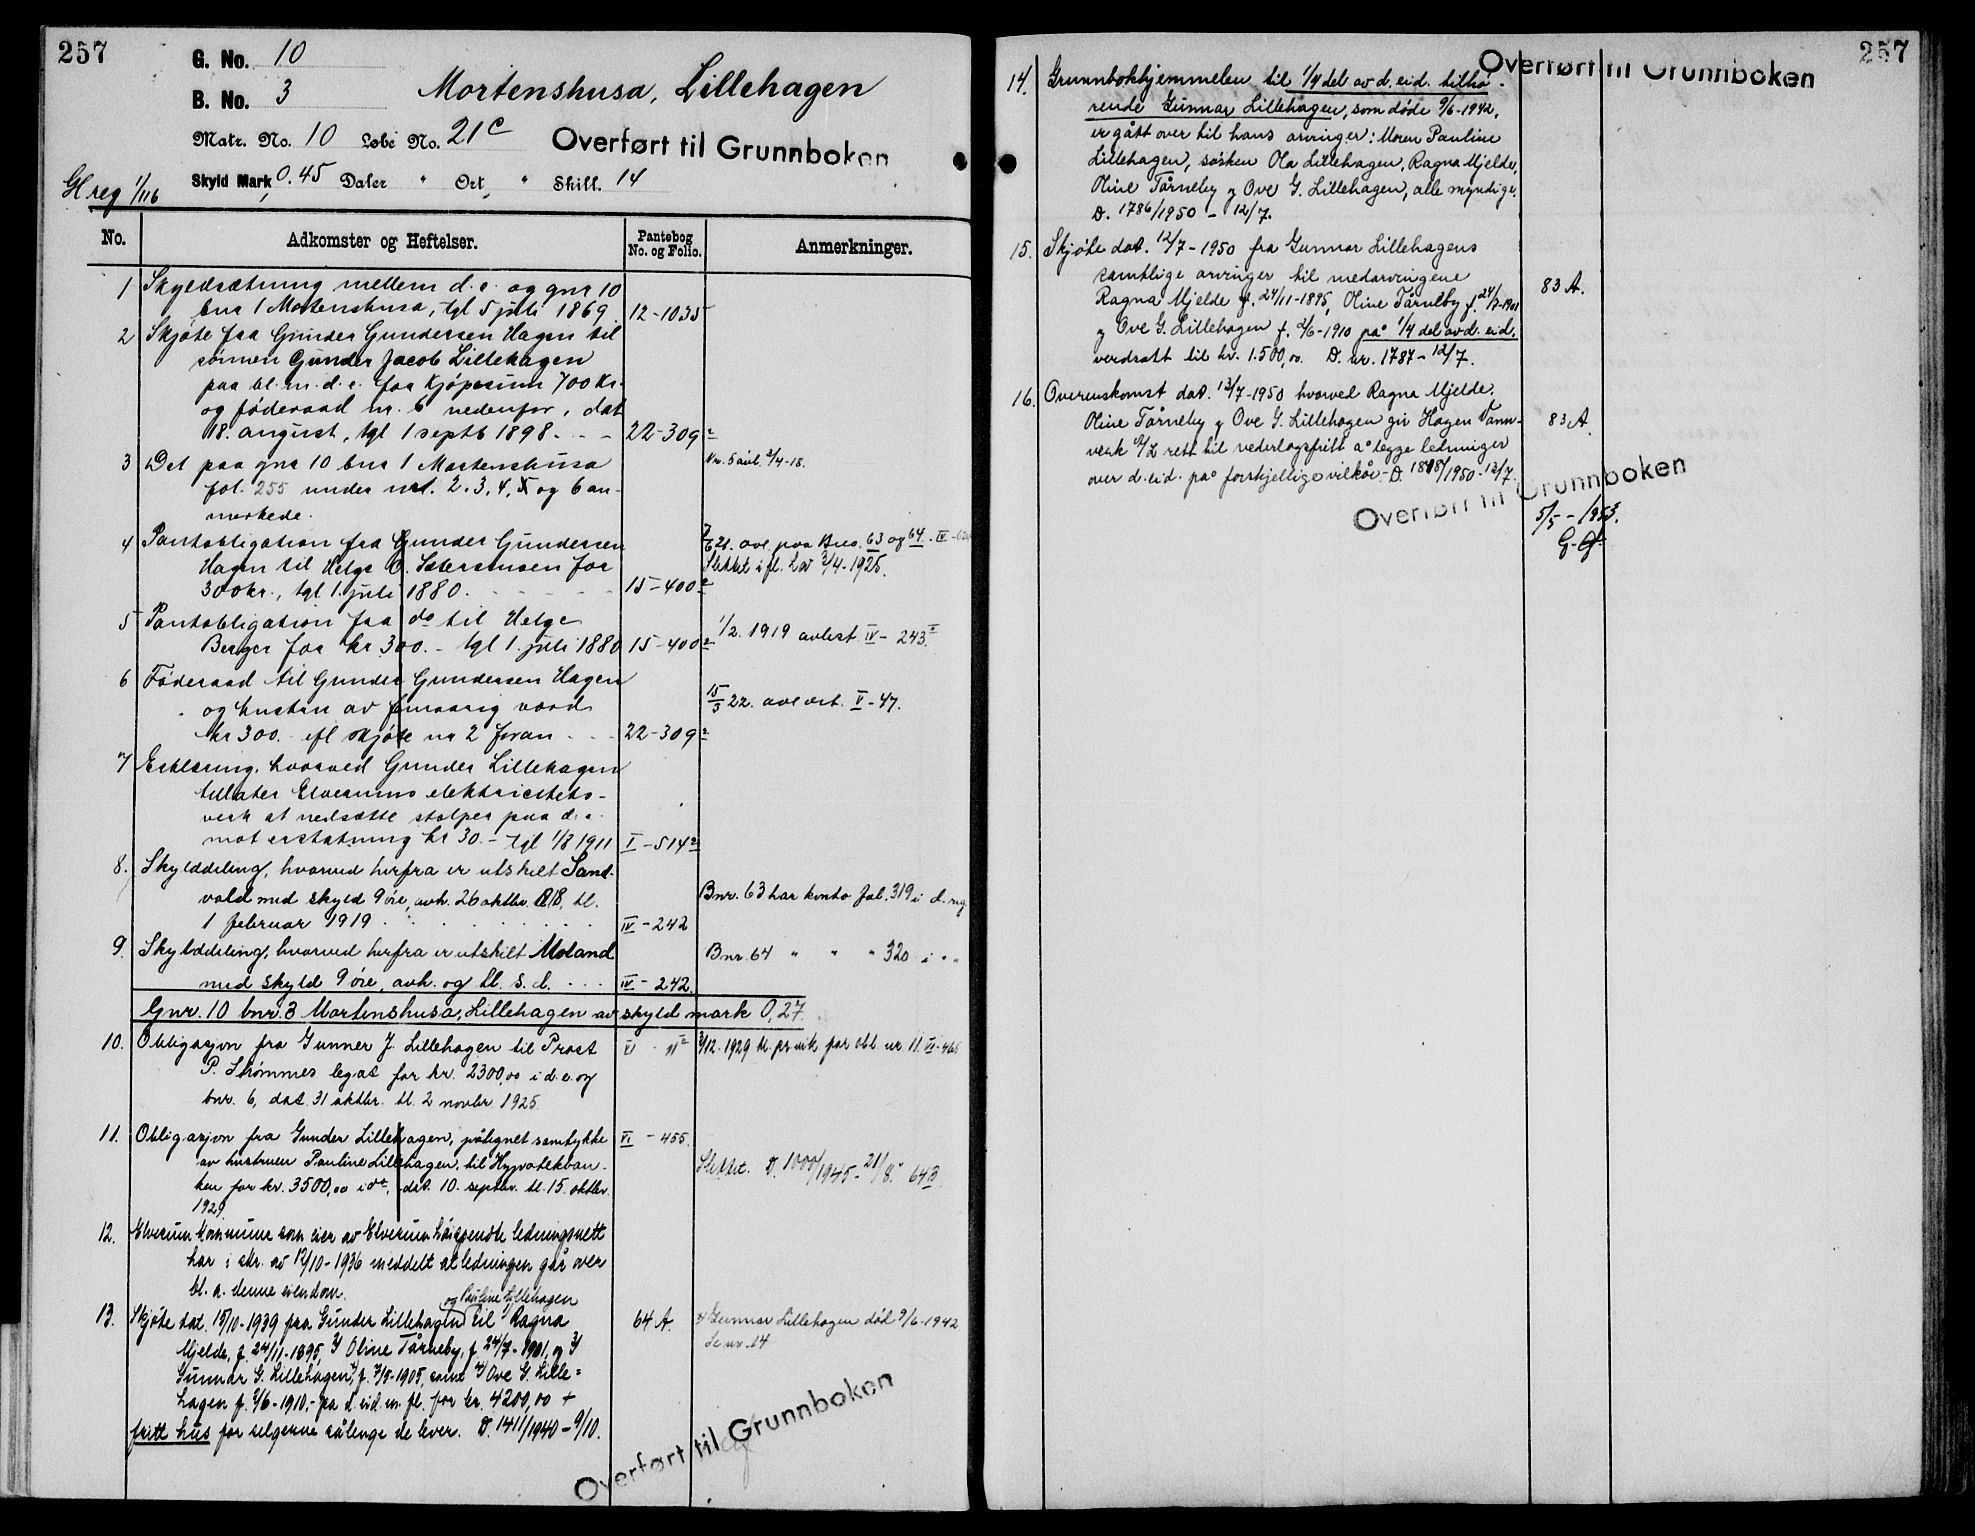 257
G. No. 10
B. No. 3
Mortenshusa, Lillehagen
Matr. No. 10 Løbe No. 21c
Overført til Grunnboken
Skyld Mark 0.45 Daler " Ort " Skill. 14
H reg 1/116
No. Adkomster og Heftelser. Pantebog No. og Folio. Anmerkninger.
1 Skyldsætning mellem d.e. og gnr 10
bnr 1 Mortenshusa, tgl 5 juli 1869. 12-1035
2 Skjøte fra Gunder Gundersen Hagen til
sønnen Gunder Jacob Lillehagen
paa bl.m.d.e. for kjøpesum 700 kr.
og føderaad nr. 6 nedenfor, dat
18. august, tgl 1 septb 1898. - - 22-309
3 Det paa gnr 10 bnr 1 Mortenshusa Nr. 5 avl. 2/4-18.
fol. 255 under nrt. 2.3.4.5 og 6 an-
merkede.
4 Pantobligation fra Gunder Gundersen 7/6 21. ovf. paa Bnrs. 63 og 64
Hagen til Helge O. for Slettet ifl. Lov 3/4-1925.
300 kr., tgl 1. juli 1880. 15-400
5 Pantobligation fra do til Helge
Berger for kr 300. - tgl 1. juli 1880 15-400 1/2. 1919 avlest IV - 243.
6 Føderaad til Gunder Gundersen Hagen
og hustru av femaarig værd 15/3 22. V-47.
kr 300. efl skjøte nr 2 foran 22-309
7 Erklæring, hvorved Gunder Lillehagen
tillater Elverums elektricitets-
verk at nedsætte stolper paa d.e.
mot erstatning kr 30. - tgl 1/8 1911 I-514
8. Skylddeling, hvorved herfra er utskilt Sand-
vold med skyld 9 øre, avh. 26 oktbr. 1918, tl. Bnr. 63 har konto fol. 319 i d. reg.
1 februar 1919 IV-242
9. Skylddeling, hvorved herfra er utskilt Moland Bnr. 64 " " " 320 i " "
med skyld 9 øre, avh. og tl. s.d. IV-242.
Gnr. 10 bnr. 3 Mortenshusa, Lillehagen av skyld mark 0,27.
10. Obligasjon fra Gunner J. Lillehagen til Prost VI - 11 3/12. 1929 tl. pr.vik for obl. nr. 11. VI-465
P. Strømmes legat for kr. 2300,00 i d.e. og
bnr. 6, dat. 31 oktbr. tl. 2 novbr 1925.
11. Obligasjon fra Gunder Lillehagen, påtegnet samtykke VI - 455.
av hustruen Pauline Lillehagen, til Hypotekban- Slettet. D. 1000/1945 - 21/8. 64B.
ken for kr. 3500,00 i do, dat. 10. septbr. tl. 15. oktbr.
1929
12. Elverum kommune som eier av Elverum høispendte ledningsnett
har i skr. av 12/10-1936 meddelt at ledningen går over
bl. a. denne eiendom.
og Pauline Lillehagen
13. Skjøte dat. 15/10-1939 fra Gunder Lillehagen til Ragna 64 A. Gunnar Lillehagen død 9/6-1942
Mjelde, f. 24/11-1895, Oline Tårneby, f. 24/7-1901, og Se nr. 14
Gunnar G. Lillehagen, f. 7/5-1905, samt Ove G. Lille=
hagen f. 2/6-1910,- pa d. eid. m. fl. for kr. 4200,00 +
fritt hus for selgerne sålenge de lever. D. 1411/1940 - 9/10.
Overført til Grunnboken
257
Overført til Grunnboken
14. Grunnbokhjemmelen til 1/4 del av d. eid. tilhø-
rende Gunnar Lillehagen, som døde 9/6-1942,
er gått over til hans arvinger: Moren Pauline
Lillehagen, søsken Ola Lillehagen, Ragna Mjelde,
Oline Tårneby og Ove G. Lillehagen, alle myndige.
D. 1786/1950 - 12/7.
15. Skjøte dat. 12/7-1950 fra Gunnar Lillehagens
samtlige arvinger til medarvingene 83 A.
Ragna Mjelde f. 24/11-1895, Oline Tårneby f. 24/7-1901
og Ove G. Lillehagen f. 2/6-1910 på 1/4 del av d. eid.
verdsatt til kr. 1.500,00. D. nr. 1787 - 12/7.
16. Overenskomst dat. 13/7-1950 hvorved Ragna Mjelde,
Oline Tårneby og Ove G. Lillehagen gir Hagen Vann- 83 A.
verk A/L rett til vederlagsfritt å legge ledninger
over d. eid. på forskjellige vilkår. - D. 1818/1950 - 13/7.
Overført til Grunnboken
5/5 - 1953.